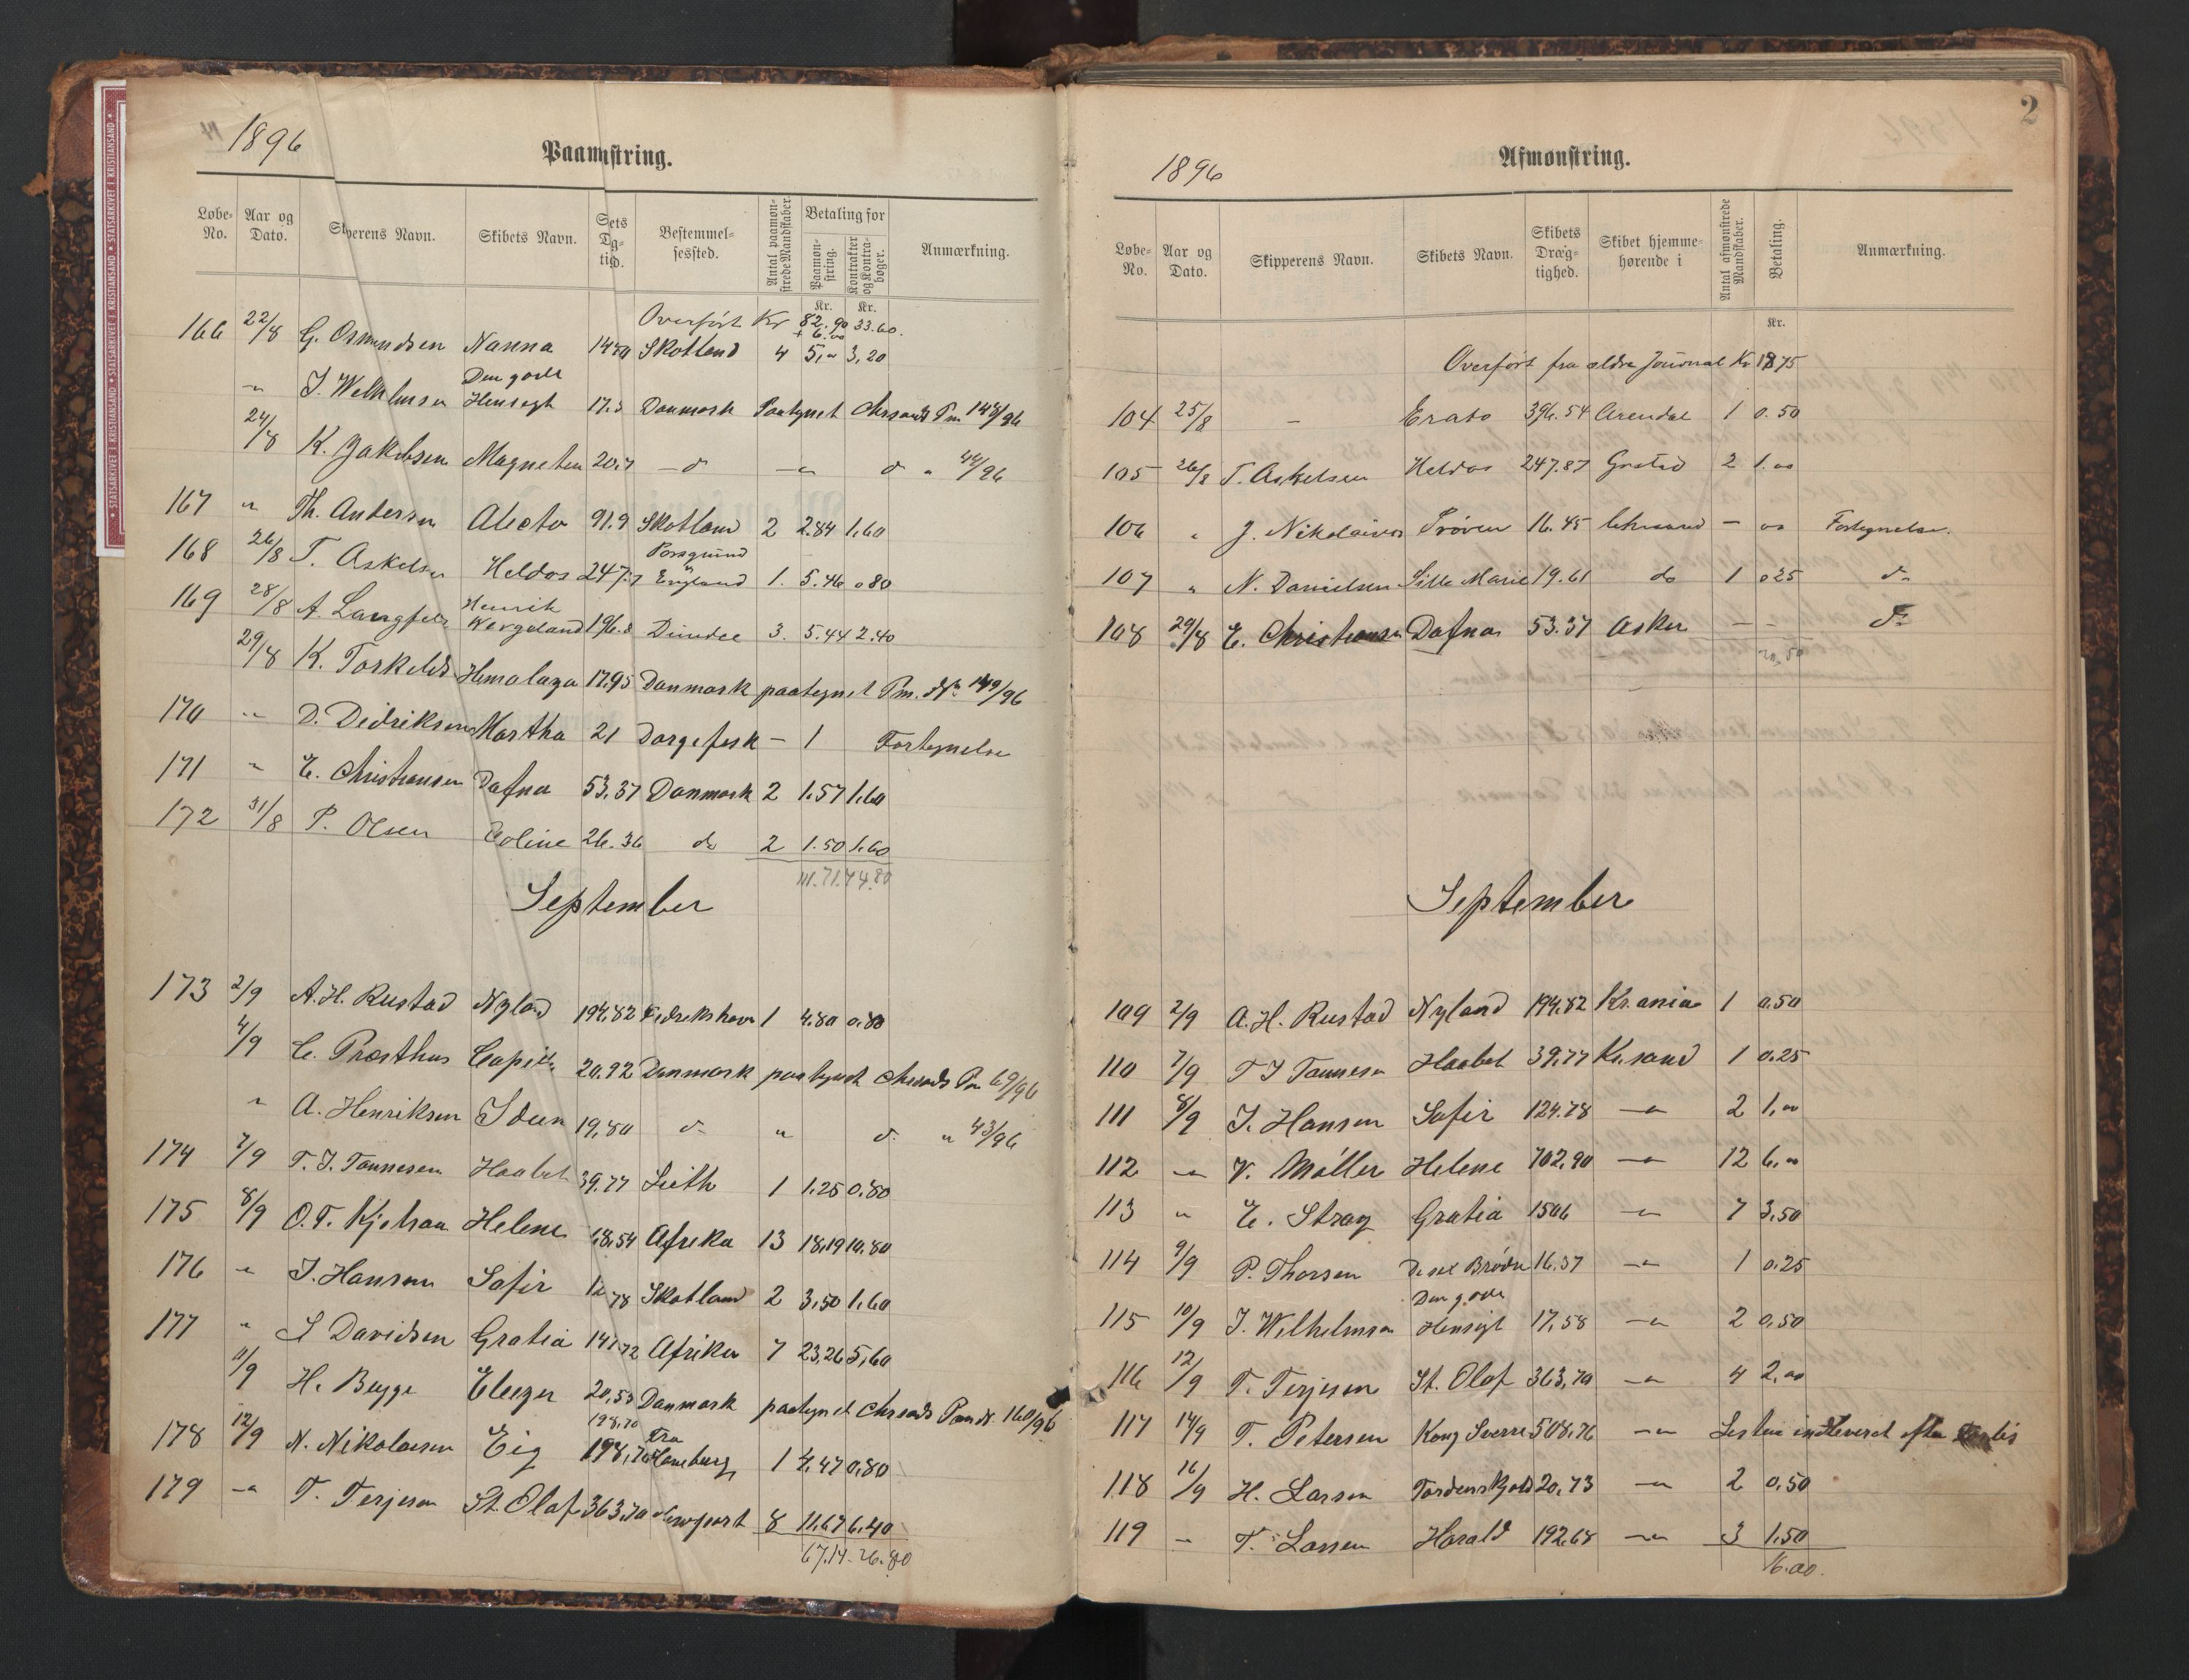 1896
Paamnstring.
Løbe-No. Aar og Dato. Skperens Navn. Skibets Navn. Sets Dg-tigd. Bestemmel-sessted. Antal paamon-strede Mandskaber. Betaling for Paamøn-string. Kontrakter og Kontra-bøger. Anmærkning.
Kr. Kr.
Overført Kr 82.90 33.60.
+ 6.00
166 22/8 G. Osmundsen Nanna Skotland 4 5,00 3,20
" J. Wilhelmsen Den gode Hensigt 17.5 Danmark Paategnet Chrsands Pm 148/96
24/8 K. Jakobsen Magneten 20,7 — do — " do " 44/96
167 " Th. Andersen Alecto 91.9 Skotland 2 2.84 1,60
168 26/8 T. Askelsen Heldos 247,7 Porsgrund England 1. 5.46 0.80
169 28/8 A. Langfeldt Henrik Wergeland 196.8 Dundee 3. 5.44 2.40
29/8 K. Torkelds Hemalaya 17,95 Danmark paategnet Pm. No 149/96
170 " D. Didriksen Martha 21 Dorgefisk — 1 Fortegnelse
171 " E. Christiansen Dafna 53,37 Danmark 2 1.57 1,60
172 31/8 P. Olsen Eoline 26.36 do 2 1.50 1.60
111.71. 44.80
September
173 2/9 A. H. Rustad Nyland 194.82 Fredrekshavn 1 4.80 0.80
4/9 C. Præsthus 20,92 Danmark paategnet Chrsands Pm 69/96
" A. Henriksen Idun 19,80 do " do " 43/96
174 7/9 T. J. Tønnesen Haabet 39.77 Leith 1 1.25 0.80
175 8/9 O. T. Helene 68,54 Afrika 13 18,19 10.80
176 " J. Hansen Safir 12 78 Skotland 2 3,50 1,60
177 " S Davidsen Gratia 141.72 Afrika 7 23,26 5,60
11/9 H. Bugge Eliezer 20,53 Danmark paategnet Chrsands Pm No. 160/96
198,70
178 12/9 N. Nikolaisen Eig 198,70 Fra Hamburg 1 4,47 0,80
179 — " T. Terjesen St. Olaf 363,70 Newport 8 11,67 6,40
67.14. 26.80
2
1896
Afmønstring.
Løbe-No. Aar og Dato. Skipperens Navn. Skibets Navn. Skibets Dræg-tighed. Skibet hjemme-hørende i Antal afmønstrede Mandskaber. Betaling. Anmærkning.
Kr.
Overført fra ældre Journal Kr 18,75
104 25/8 — Erato 396.54 Arendal 1 0.50
105 26/8 T. Askelsen Heldos 247.87 Grstad 2 1.00
106 " J. Nikolaisen Prøven 16.45 Chrsand — " Fortegnelse.
107 " N. Danielsen Lille Marie 19.61 do 1 0.25 do
108 29/8 E. Christiansen Dafna 53.37 Asker — — do
20.50
September
109 2/9 A. H. Rustad Nyland 194.82 Kr.ania 1 0.50
110 7/9 T J Tønnesen Haabet 39,77 Kr.sand 1 0.25
111 8/9 J. Hansen Safir 124.78 — " 2 1,00
112 — " V. Møller Helene 702,90 — " 12 6,00
113 " E. Stray Gratia 1506 — " 7 3,50
114 9/9 P. Thorsen De sex Brødre 16.37 — " 1 0.25
115 10/9 J. Wilhelmsen Den gode Hensigt 17,58 — " 2 0,50
116 12/9 T. Terjesen St. Olaf 363,70 — " 4 2,00
117 14/9 T. Petersen Kong Sverre 508,76 — " Listen indleveret efter
118 16/9 H. Larsen Tordenskjold 20,73 — " 2 0,50
119 — T. Larsen Harald 192.68 — " 3 1.50
16.00.
STATSARKIVET I KRISTIANSAND • STATSARKIVET I KRISTIANSAND • STATSARKIVET I KRISTIANSAND